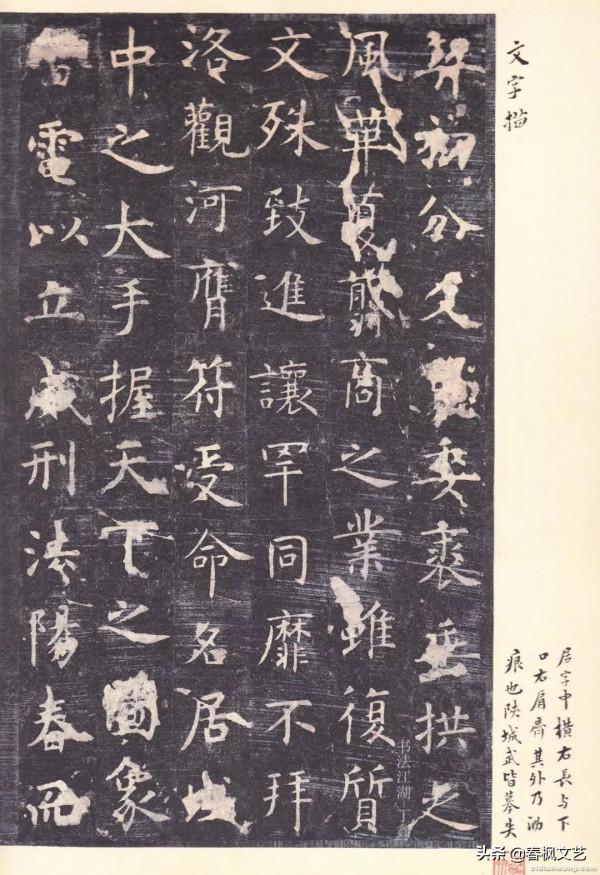 文字描
契初分爻象委裘垂拱之
風革夏翦商之業雖復質
文殊致進讓罕同靡不拜
洛觀河膺符受命名居域
中之大手握天下之圖象
雷電以立威刑法陽春而
居字中橫右長与下
口右肩齊其外乃泐
痕也陕城武皆摹失
书法江湖
头条 @春枫文艺
zidianwang.com